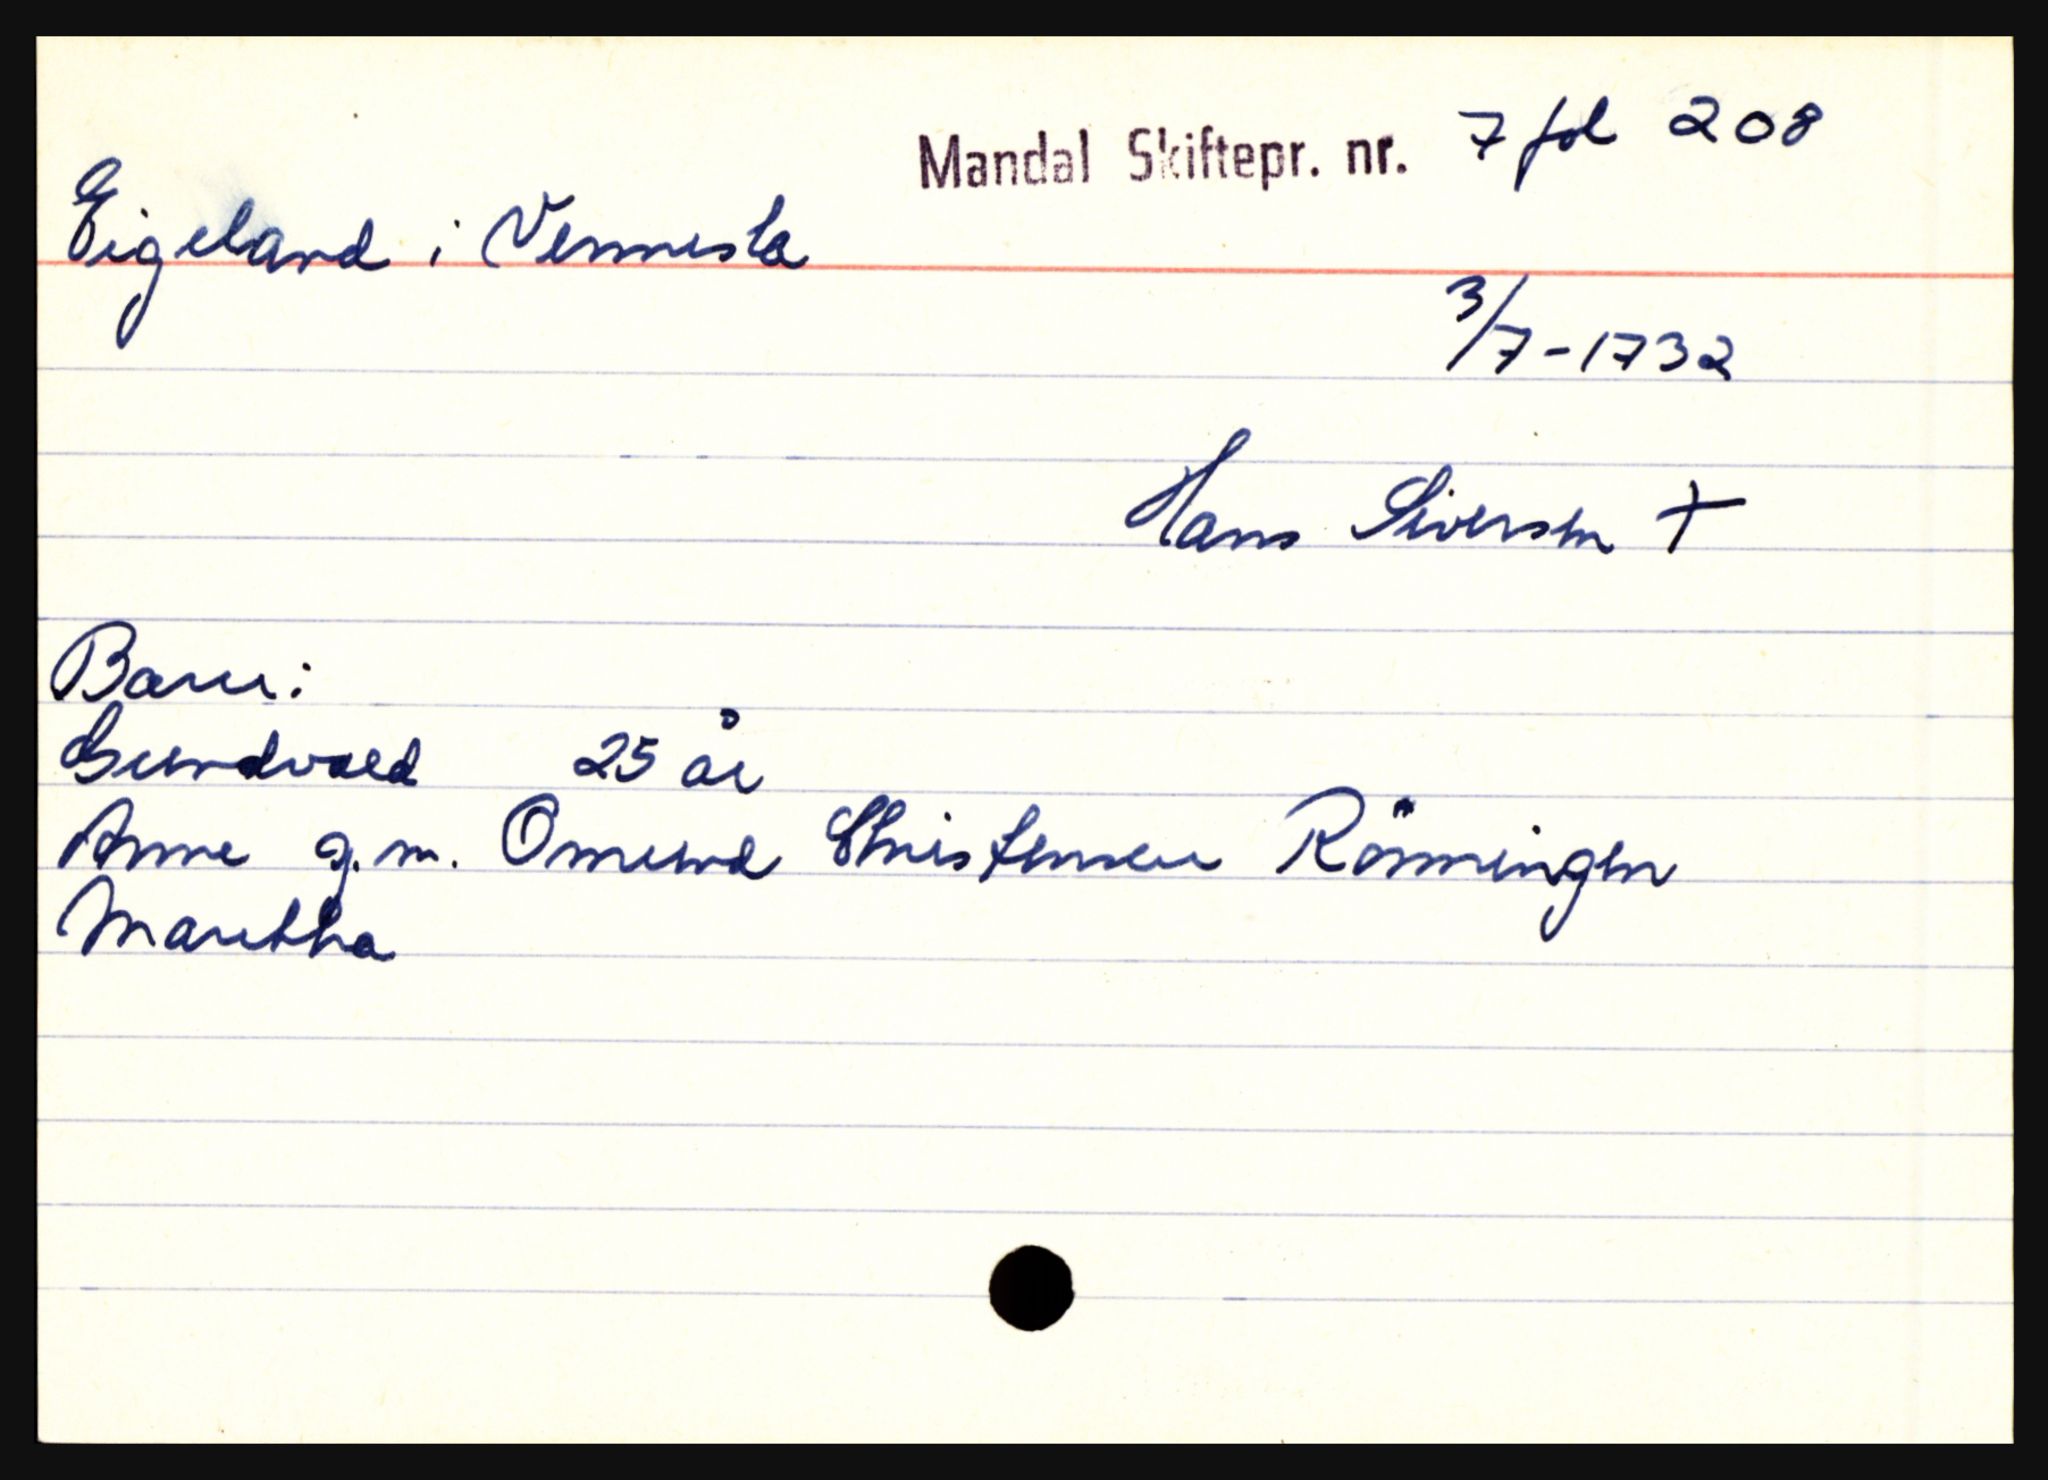 Mandal Skiftepr. nr. 7 fol 208
Eigeland i Vennesla
3/7-1732
Hans Siversen +
Barn:
Gundvald 25 år
Anne g.m. Omund Christensen Rönningen
Maretha